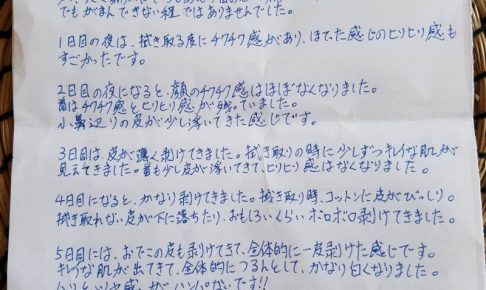 でもがまんできない程ではありませんでした。
1日目の夜は、拭き取る度にチクチク感があり、ほてった感じのヒリヒリ感も
すごかったです。
2日目の夜になると、顔のチクチク感はほぼなくなりました。
首はチクチク感とヒリヒリ感が残っていました。
小鼻辺りの皮が少し浮いてきた感じです。
3日目は、皮が薄く剥けてきました。拭き取りの時に少しずつキレイな肌が
見えてきました。首も少し皮が浮いてきて、ヒリヒリ感はなくなりました。
4日目になると、かなり剥けてきました。拭き取り時、コットンに皮がびっしり。
拭き取れない皮が下に落ちたり、おもしろいくらいボロボロ剥けてきました。
5日目には、おでこの皮も剥けてきて、全体的に一度剥けた感じです。
キレイな肌が出てきて、全体的につるんとして、かなり白くなりました。
ハリとツヤ感がハンパないです!!